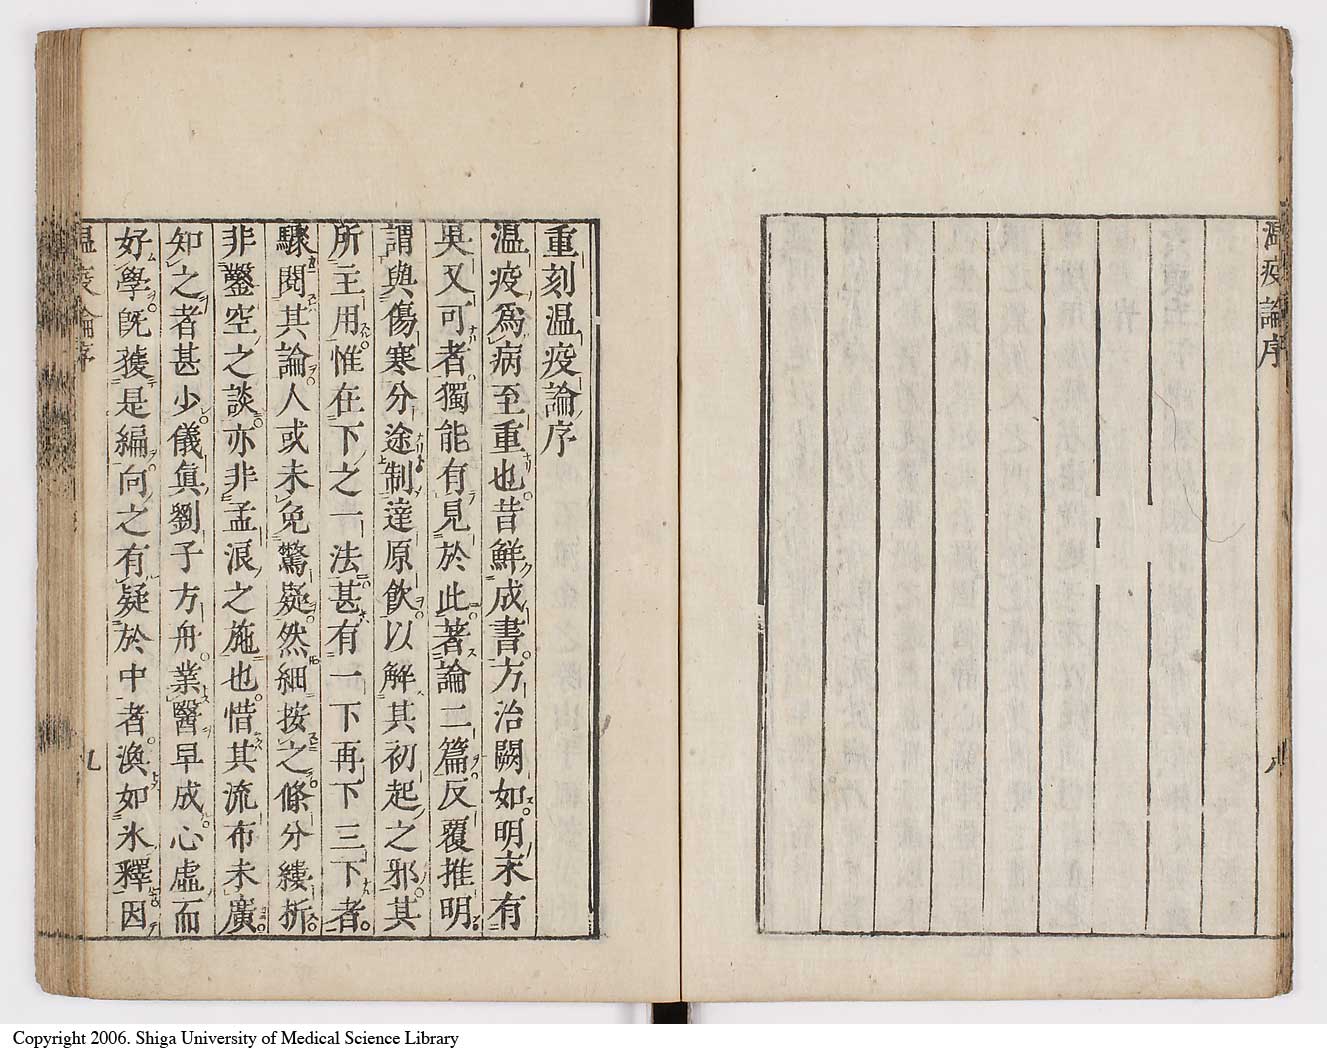 温疫論序
八
重刻温疫論序
温疫爲病至重也昔鮮成書方治闕如明末有
吳又可者獨能有見於此著論二篇反覆推明
謂與傷寒分途制達原飲以解其初起之邪其
所主用惟在下之一法甚有一下再下三下者
驟閱其論人或未免驚疑然細按之條分縷析
非鑿空之談亦非孟浪之施也惜其流布未廣
知之者甚少儀眞劉子方舟業醫早成心虛而
好學旣獲是編向之有疑於中者渙如氷釋因
温疫論序
九
Copyright 2006. Shiga University of Medical Science Library